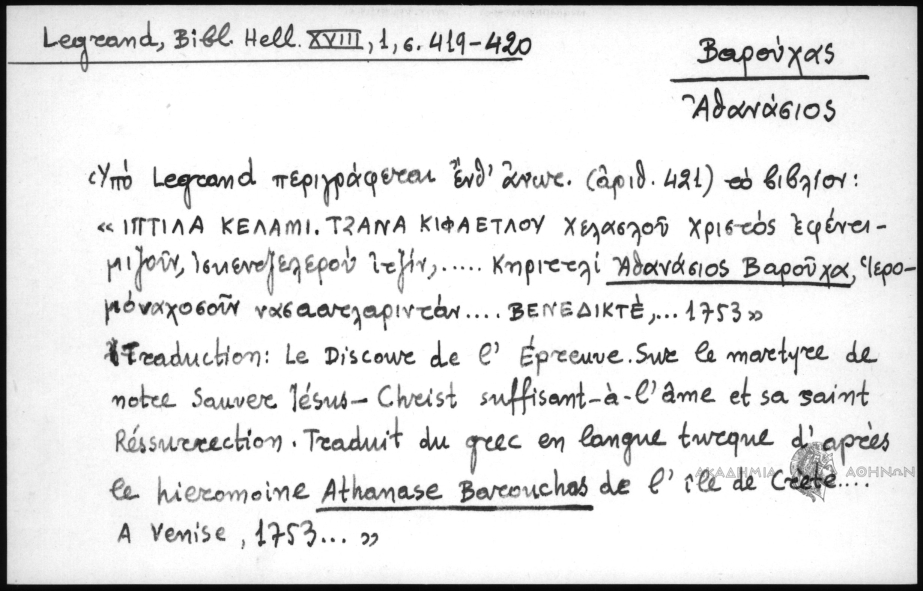 Legrand, Bibl. Hell. XVIII, 1, σ. 419-420
Βαρούχας
Ἀθανάσιος
Ὑπό Legrand περιγράφεται ἔνθ' ἄνωτ. (ἀριθ. 421) τό βιβλίον:
« ΙΠΤΙΛΑ ΚΕΛΑΜΙ. ΤΖΑΝΑ ΚΙΦΑΕΤΛΟΥ χελασλοῦ Χριστός ἐφέντι-
μιζοῦν, ἰσκεντζελεροῦ ἰτζίν, ..... κηριτελί Ἀθανάσιος Βαροῦχα, Ἱερο-
μόναχοσοῦν νασαατλαριντάν .... ΒΕΝΕΔΙΚΤΕ, ... 1753 »
Traduction: Le Discour de l' Épreuve. Sur le martyre de
notre Sauver Jésus-Christ suffisant-à-l'âme et sa saint
Réssurrection. Traduit du grec en langue turque d'après
le hieromoine Athanase Barouchas de l' île de Crète....
A Venise, 1753... »
ΑΚΑΔΗΜΙΑ ΑΘΗΝΩΝ